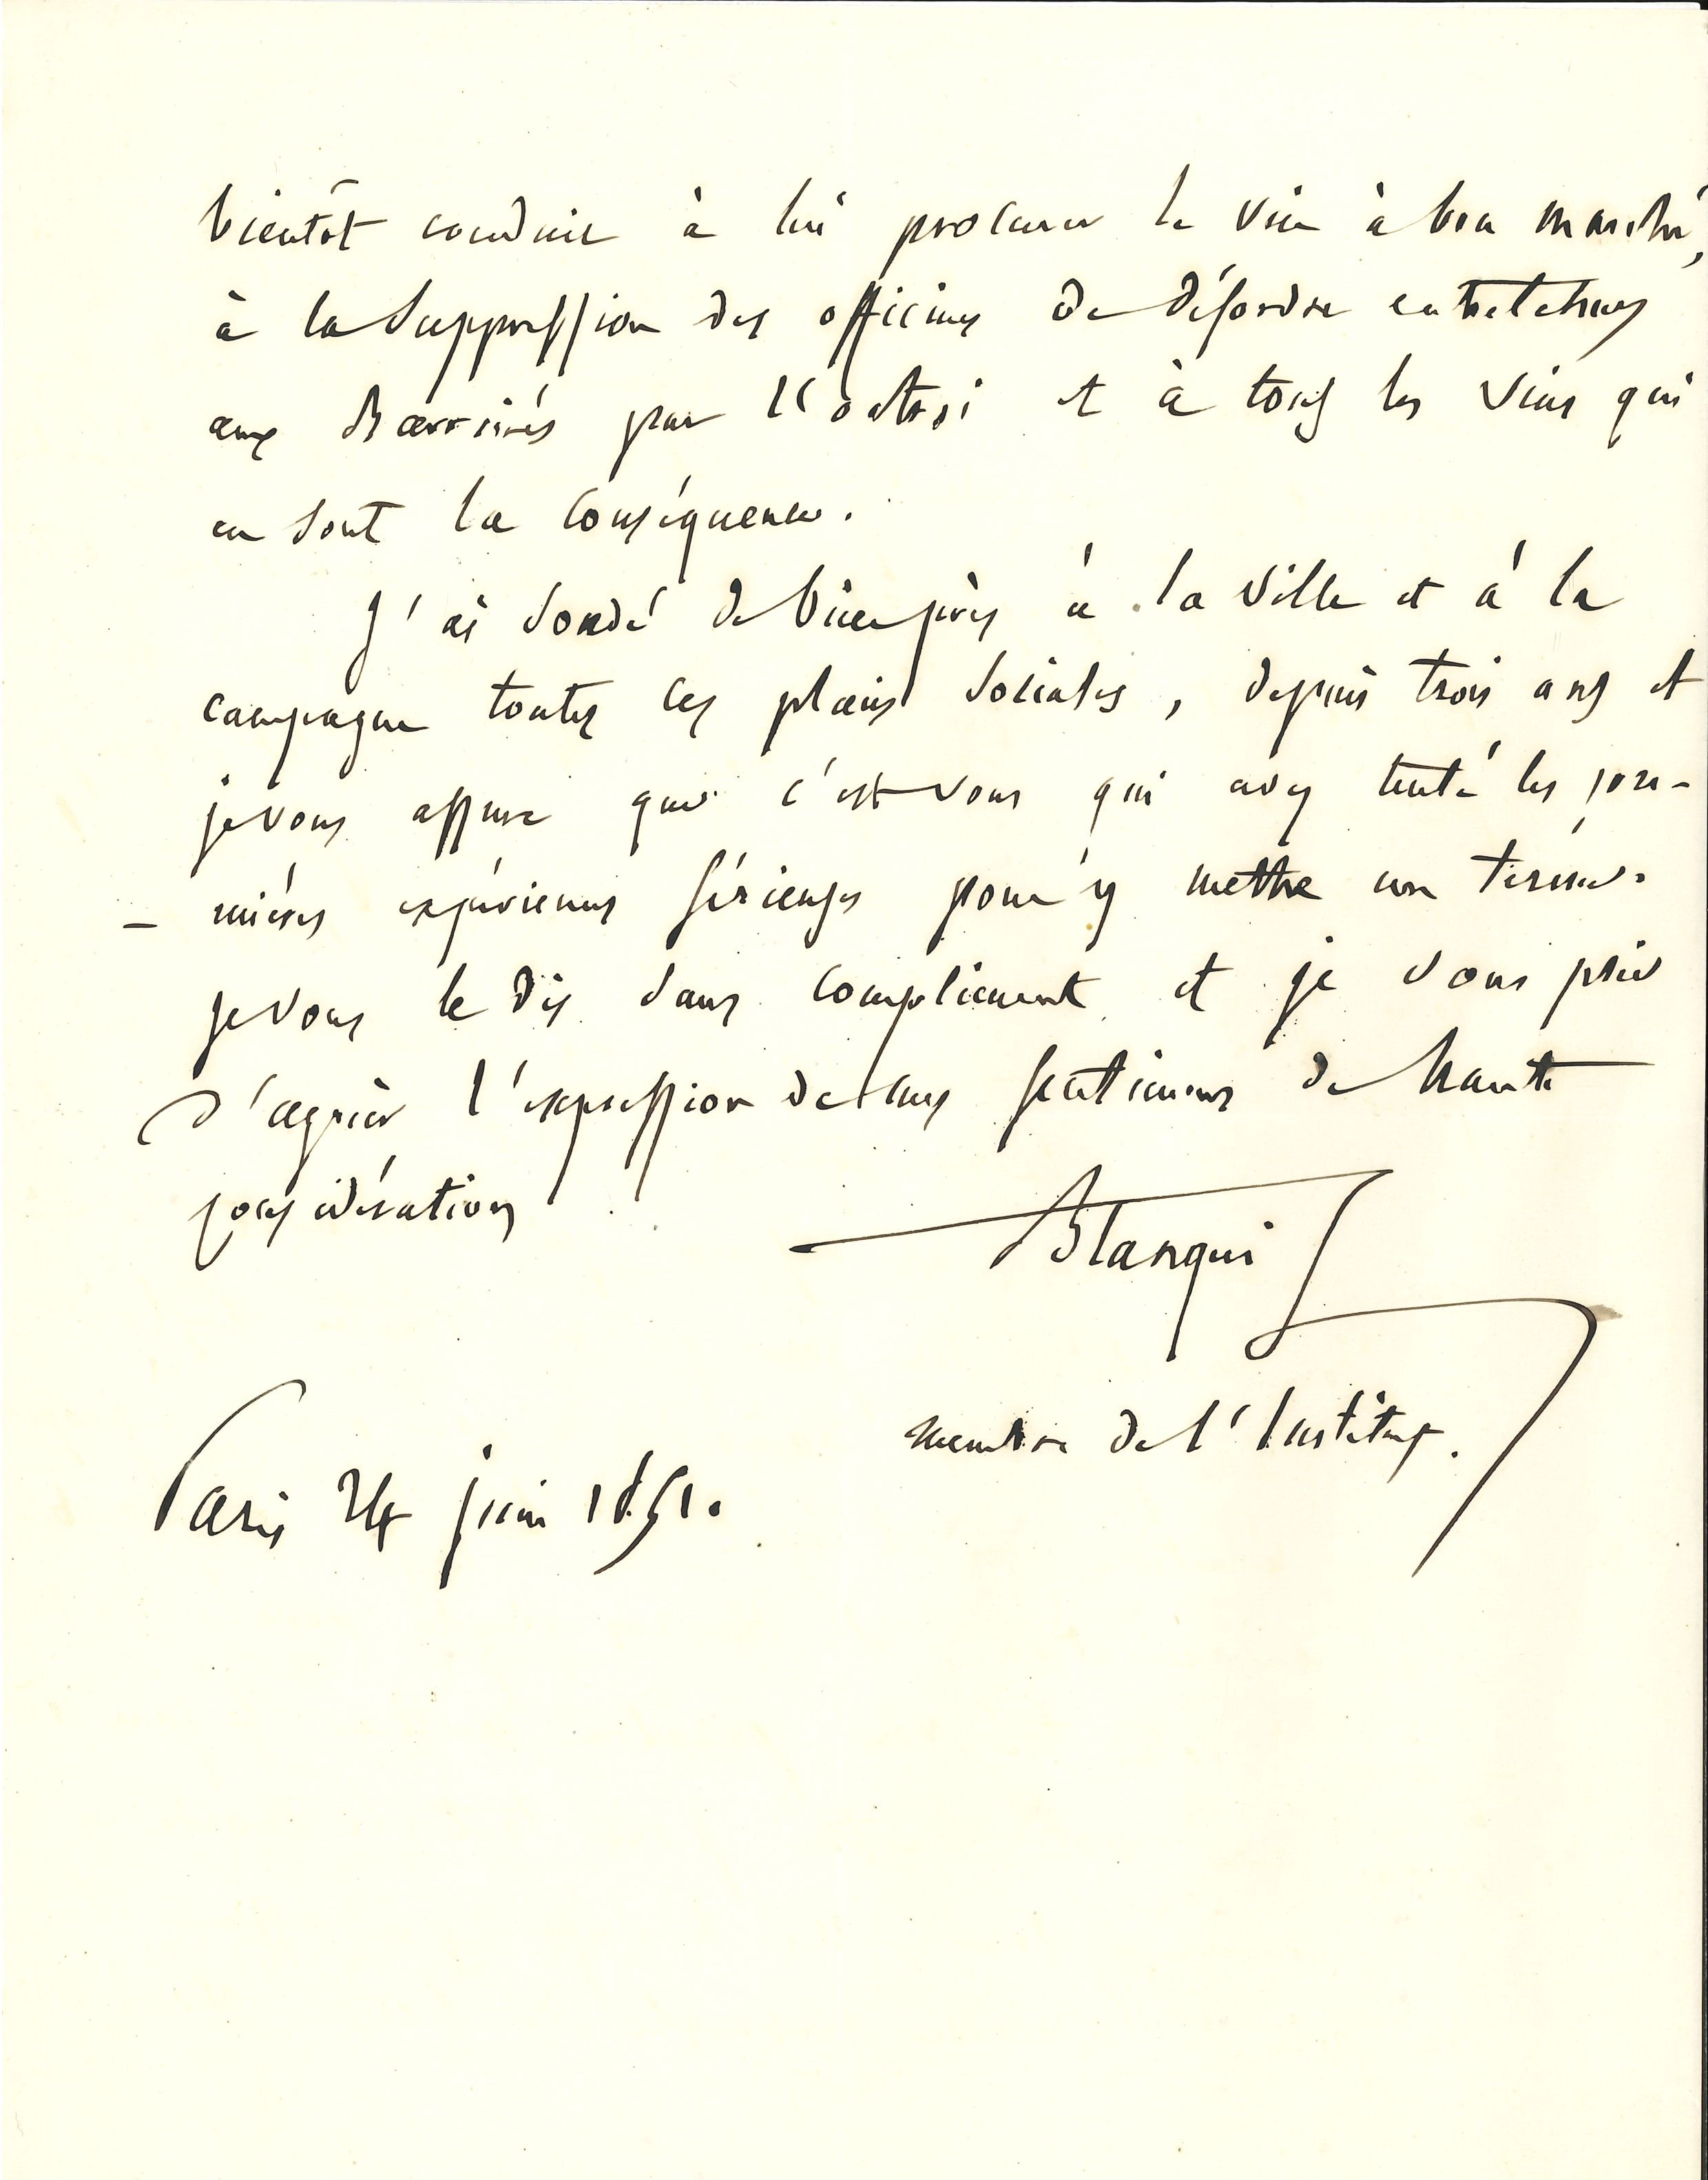 bientôt conduit à lui procurer le vin à bon marché,
à la suppression des officines de désordre entretenues
aux barrières par l'octroi et à tous les vins qui
en sont la conséquence.
J'ai sondé de bien près à la ville et à la
campagne toutes ces plaies sociales, depuis trois ans et
je vous assure que c'est vous qui avez tenté les pre-
- mières expériences sérieuses pour y mettre un terme.
je vous le dis sans compliment et je vous prie
d'agréer l'expression de mes sentimens de haute
considération
Blanqui
membre de l'Institut.
Paris 24 juin 1851.